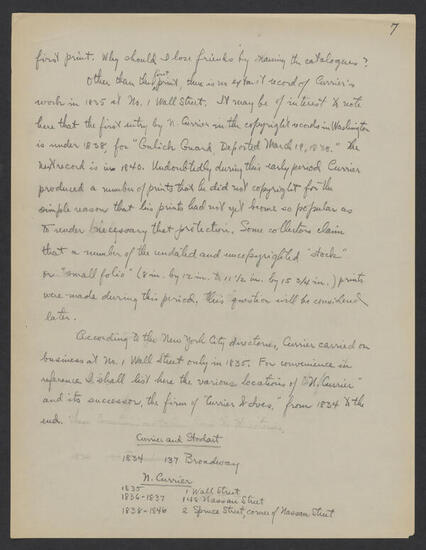 7
first print. Why should I lose friends by naming the catalogues?
Other than this first print, there is no extant record of Currier's
work in 1835 at No. 1 Wall Street. It may be of interest to note
here that the first entry by N. Currier in the copyright records in Washington
is under 1838, for "Guard, Deposited March 19, 1838." The
next record is in 1840. Undoubtedly during this early period Currier
produced a number of prints that he did not copyright for the
simple reason that his prints had not yet become so popular as
to render necessary that protection. Some collectors claim
that a number of the undated and uncopyrighted "stock"
or "small folio" (8 in. by 12 in. to 11 1/2 in. by 15 3/4 in.) prints
were made during this period. This question will be considered
later.
According to the New York City directories, Currier carried on
business at No. 1 Wall Street only in 1835. For convenience in
reference I shall list here the various locations of "N. Currier"
and its successor, the firm of "Currier & Ives," from 1834 to the
end.
Currier and Stodart
1834 137 Broadway
N. Currier
1835 1 Wall Street
1836-1837 148 Nassau Street
1838-1846 2 Spruce Street, corner of Nassau Street